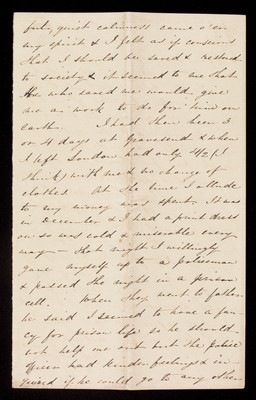 quiet calmness came o'er
my spirit & I felt as if conscious
that I should be saved & restored
to society & it seemed to me that
He who saved me would give
me a work to do for him on
earth. I had then been 3
or 4 days at Gravesend & when
I left London had only 4/2 (I
think) with me & no change of
clothes. At the time I allude
to my money was spent. It was
in December & I had a print dress
on so was cold & miserable every
way — that night I willingly
gave myself up to a policeman
& passed the night in a prison
cell. When they went to father
he said I seemed to have a fan-
cy for prison life so he should
not help me out but the police
officer had kinder feelings & in-
quired if he could go to any other